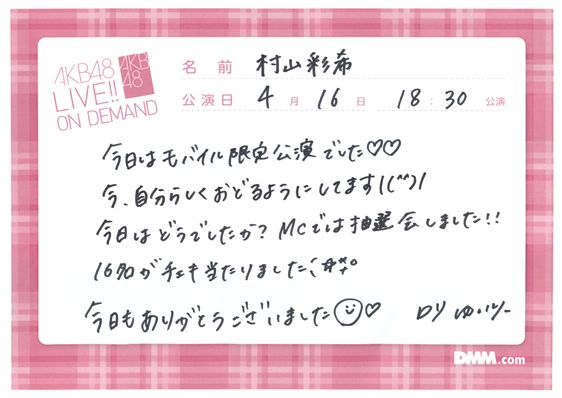 AKB48
LIVE!!
ON DEMAND
AKB
48
名 前 村山彩希
公演日 4 月 16 日 18:30 公演
今日はモバイル限定公演でした♡♡
今、自分らしくおどるようにしてます!(^^)!
今日はどうでしたか? MCでは抽選会しました!!
16名がチェキ当たりました
今日もありがとうございました☺♡ by ゆいりー
DMM.com